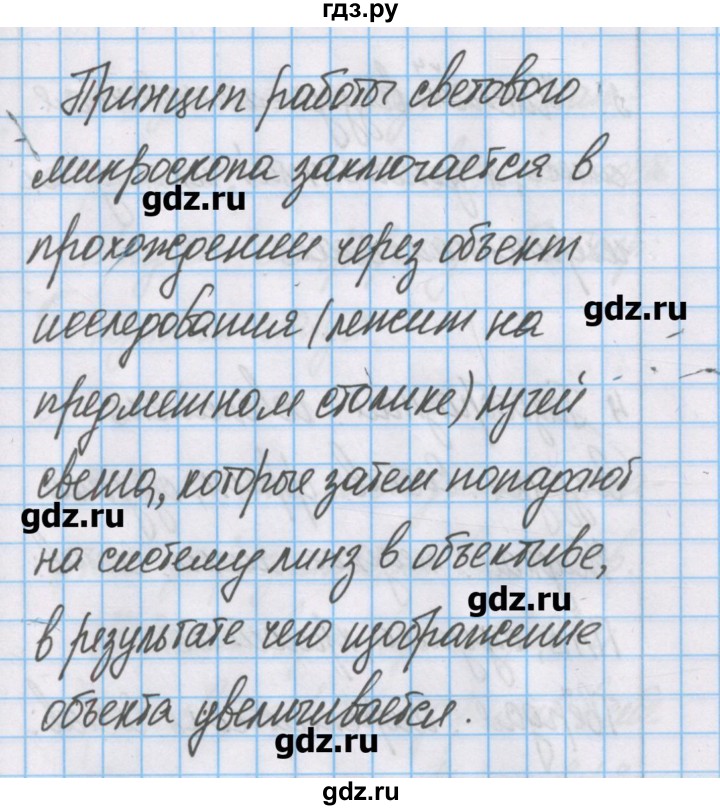 гдз.ру
Принцип работы светового
микроскопа заключается в
gdz.ru
прохождении через объект
gdz.ru
исследования (лежит на
предметном столике) лучей
света, которые затем попадают
gdz.ru
на систему линз в объективе,
gdz.ru
в результате чего изображение
объекта увеличивается.
gdz.ru
gdz.ru